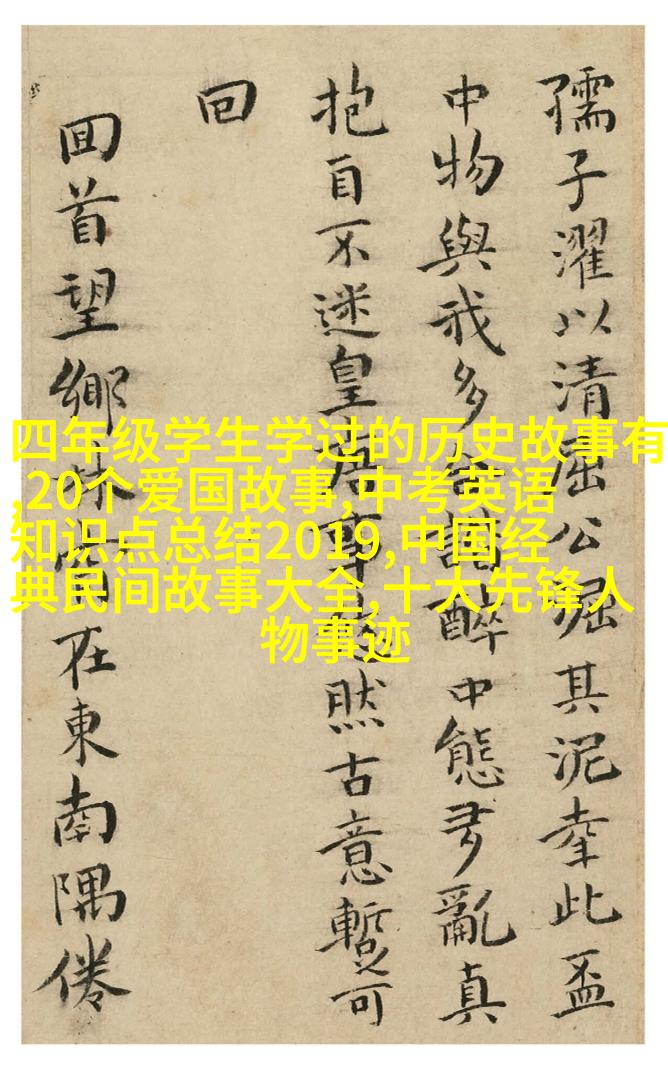 孺子濯以清屈公掘其泥此盃
中物與我多醉中態多亂真
抱自不迷皇然古意暫可
回
囬首望鄉在東南隅倦
四年级学生学过的历史故事有
,20个爱国故事,中考英语
知识点总结2019,中国经
典民间故事大全,十大先锋人
物事迹